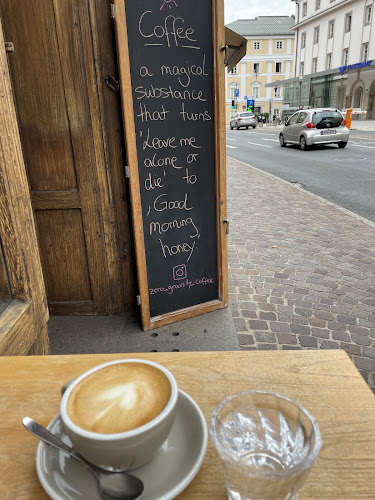 Coffee
a magical
substance
that turns
'Leave me
alone or
die' to
,Good
morning,
honey.
zero_gravity_coffee